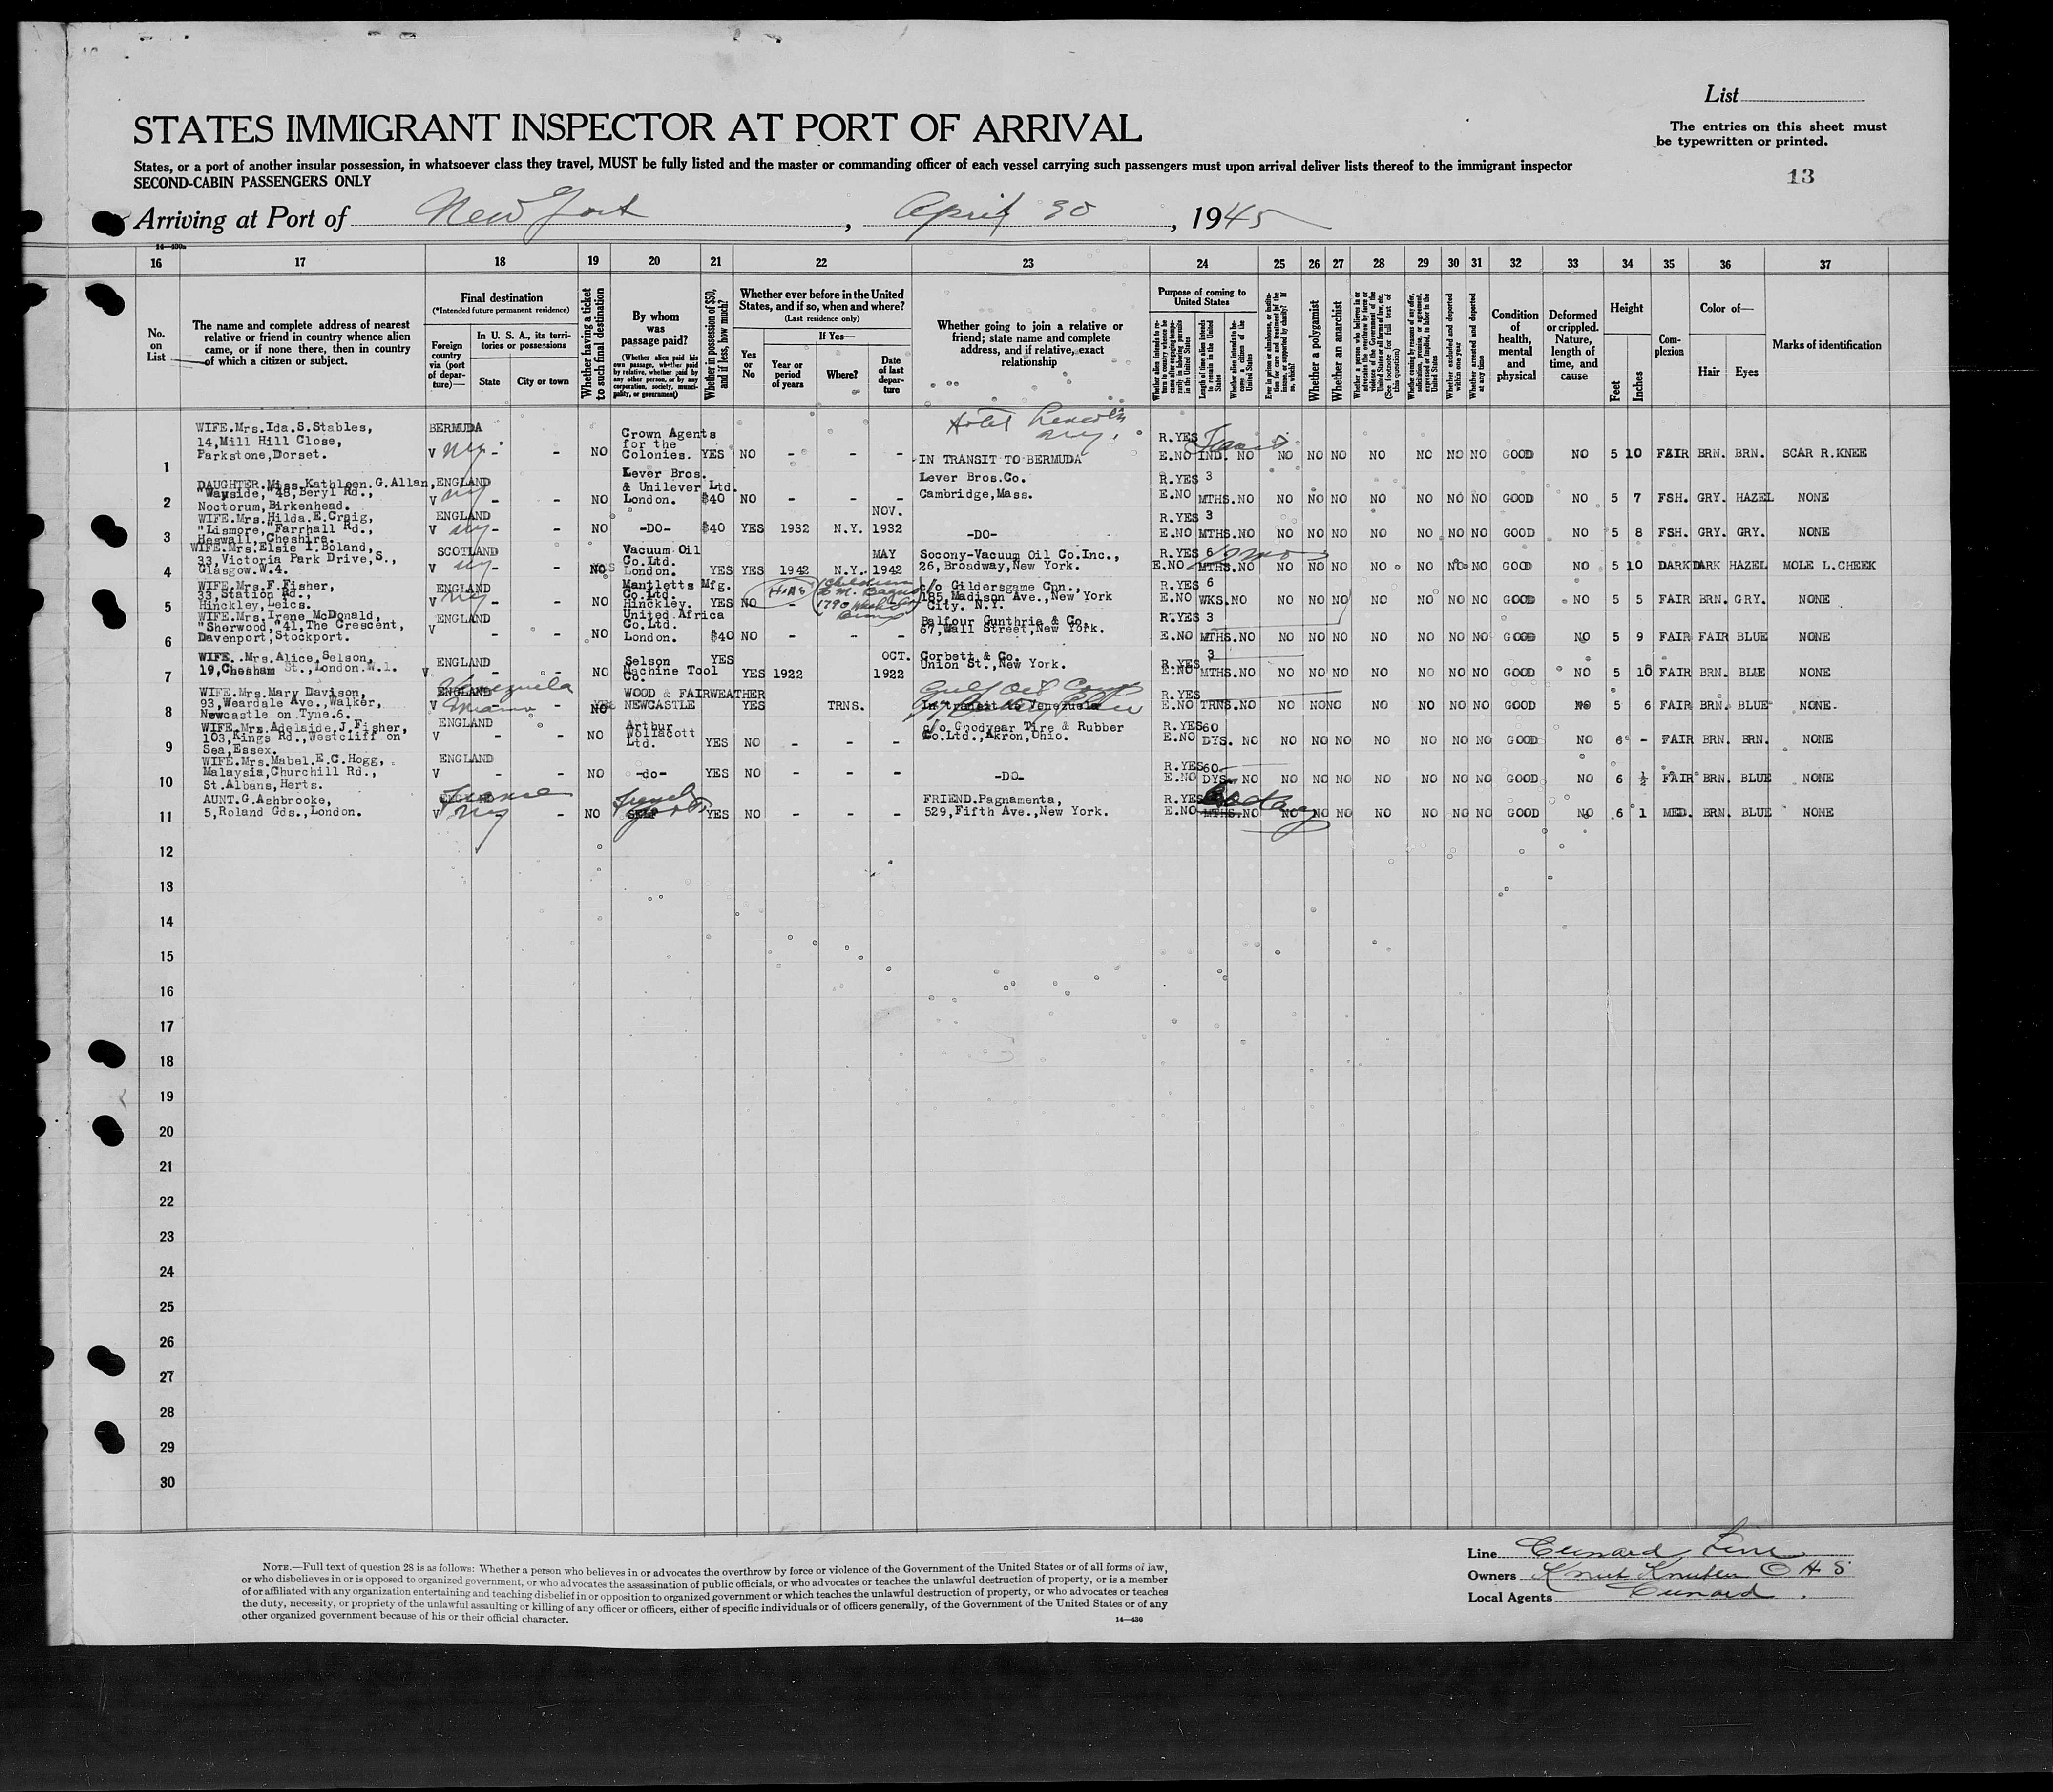 List
STATES IMMIGRANT INSPECTOR AT PORT OF ARRIVAL
The entries on this sheet must
be typewritten or printed.
States, or a port of another insular possession, in whatsoever class they travel, MUST be fully listed and the master or commanding officer of each vessel carrying such passengers must upon arrival deliver lists thereof to the immigrant inspector
SECOND-CABIN PASSENGERS ONLY
13
Arriving at Port of New York, April 30, 1945
16 17 18 19 20 21 22 23 24 25 26 27 28 29 30 31 32 33 34 35 36 37
No. on List
The name and complete address of nearest
relative or friend in country whence alien
came, or if none there, then in country
of which a citizen or subject.
Final destination
(*Intended future permanent residence)
Foreign country via (port of departure)—
In U. S. A., its territories or possessions
State
City or town
Whether having a ticket to such final destination
By whom was passage paid?
(Whether alien paid his own passage, whether paid by relative, whether paid by any other person, or by any corporation, society, municipality, or government)
Whether in possession of $50, and if less, how much?
Whether ever before in the United States, and if so, when and where?
(Last residence only)
Yes or No
If Yes—
Year or period of years
Where?
Date of last departure
Whether going to join a relative or friend; state name and complete address, and if relative, exact relationship
Purpose of coming to United States
Length of time alien intends to remain in the United States
Whether alien intends to become a citizen of the United States
Whether a polygamist
Whether an anarchist
Whether excluded and deported within one year
Whether arrested and deported at any time
Condition of health, mental and physical
Deformed or crippled. Nature, length of time, and cause
Height
Feet
Inches
Complexion
Color of—
Hair
Eyes
Marks of identification
1 WIFE.Mrs.Ida.S.Stables, 14,Mill Hill Close, Parkstone,Dorset. BERMUDA V NY - - NO Crown Agents for the Colonies. YES NO - - - IN TRANSIT TO BERMUDA R.YES E.NO IND. NO NO NO NO NO NO NO NO GOOD NO 5 10 FAIR BRN. BRN. SCAR R.KNEE
2 DAUGHTER.Miss.Kathleen.G.Allan, "Wayside,"48,Beryl Rd., Noctorum,Birkenhead. ENGLAND V NY - - NO Lever Bros. & Unilever Ltd. London. $40 NO - - - Lever Bros.Co. Cambridge,Mass. R.YES E.NO 3 MTHS.NO NO NO NO NO NO NO NO GOOD NO 5 7 FSH. GRY. HAZEL NONE
3 WIFE.Mrs.Hilda.E.Craig, "Lismore,"Farrhall Rd., Heswall,Cheshire. ENGLAND V NY - - NO -DO- $40 YES 1932 N.Y. NOV. 1932 -DO- R.YES E.NO 3 MTHS.NO NO NO NO NO NO NO NO GOOD NO 5 8 FSH. GRY. GRY. NONE
4 WIFE.Mrs.Elsie I.Boland, 33,Victoria Park Drive,S., Glasgow.W.4. SCOTLAND V NY - - NO Vacuum Oil Co.Ltd. London. YES YES 1942 N.Y. MAY 1942 Socony-Vacuum Oil Co.Inc., 26,Broadway,New York. R.YES E.NO 6 MTHS.NO NO NO NO NO NO NO NO GOOD NO 5 10 DARK DARK HAZEL MOLE L.CHEEK
5 WIFE.Mrs.F.Fisher, 33,Station Rd., Hinckley,Leics. ENGLAND V NY - - NO Mantletts Mfg. Co.Ltd. Hinckley. YES NO - c/o Gildersgame Cpn., 185,Madison Ave.,New York City. N.Y. R.YES E.NO 6 WKS.NO NO NO NO NO NO NO NO GOOD NO 5 5 FAIR BRN. GRY. NONE
6 WIFE.Mrs.Irene McDonald, "Sherwood,"41,The Crescent, Davenport,Stockport. ENGLAND V - - NO United Africa Co.Ltd. London. $40 NO - - - Balfour Gunthrie & Co. 67,Wall Street,New York. R.YES E.NO 3 MTHS.NO NO NO NO NO NO NO NO GOOD NO 5 9 FAIR FAIR BLUE NONE
7 WIFE..Mrs.Alice.Selson, 19,Chesham St.,London.W.1. ENGLAND V - - NO Selson Machine Tool Co. YES YES 1922 OCT. 1922 Corbett & Co. Union St.,New York. R.YES E.NO 3 MTHS.NO NO NO NO NO NO NO NO GOOD NO 5 10 FAIR BRN. BLUE NONE
8 WIFE.Mrs.Mary Davison, 93,Weardale Ave.,Walker, Newcastle on Tyne.6. ENGLAND Venezuela V Miami - NO YES WOOD & FAIRWEATHER NEWCASTLE YES TRNS. Gulf Oil Comp In transit to Venezuela R.YES E.NO TRNS.NO NO NO NO NO NO NO NO GOOD NO 5 6 FAIR BRN. BLUE NONE.
9 WIFE.Mrs.Adelaide.J.Fisher, 103,Kings Rd.,Westcliff on Sea,Essex. ENGLAND V - - NO Arthur Wollacott Ltd. YES NO - - - c/o Goodyear Tire & Rubber Co.Ltd.,Akron,Ohio. R.YES E.NO 60 DYS. NO NO NO NO NO NO NO NO GOOD NO 6 - FAIR BRN. BRN. NONE
10 WIFE.Mrs.Mabel.E.C.Hogg, Malaysia,Churchill Rd., St.Albans,Herts. ENGLAND V - - NO -do- YES NO - - - -DO- R.YES E.NO 60 DYS. NO NO NO NO NO NO NO NO GOOD NO 6 ½ FAIR BRN. BLUE NONE
11 AUNT.G.Ashbrooke, 5,Roland Gds.,London. France V NY - NO SELF YES NO - - - FRIEND.Pagnamenta, 529,Fifth Ave.,New York. R.YES E.NO MTHS.NO NO NO NO NO NO NO NO GOOD NO 6 1 MED. BRN. BLUE NONE
12
13
14
15
16
17
18
19
20
21
22
23
24
25
26
27
28
29
30
NOTE.—Full text of question 28 is as follows: Whether a person who believes in or advocates the overthrow by force or violence of the Government of the United States or of all forms of law,
or who disbelieves in or is opposed to organized government, or who advocates the assassination of public officials, or who advocates or teaches the unlawful destruction of property, or is a member
of or affiliated with any organization entertaining and teaching disbelief in or opposition to organized government or which teaches the unlawful destruction of property, or who advocates or teaches
the duty, necessity, or propriety of the unlawful assaulting or killing of any officer or officers, either of specific individuals or of officers generally, of the Government of the United States or of any
other organized government because of his or their official character.
14—430
Line Cunard Line
Owners Knut Knutsen O A S
Local Agents Cunard